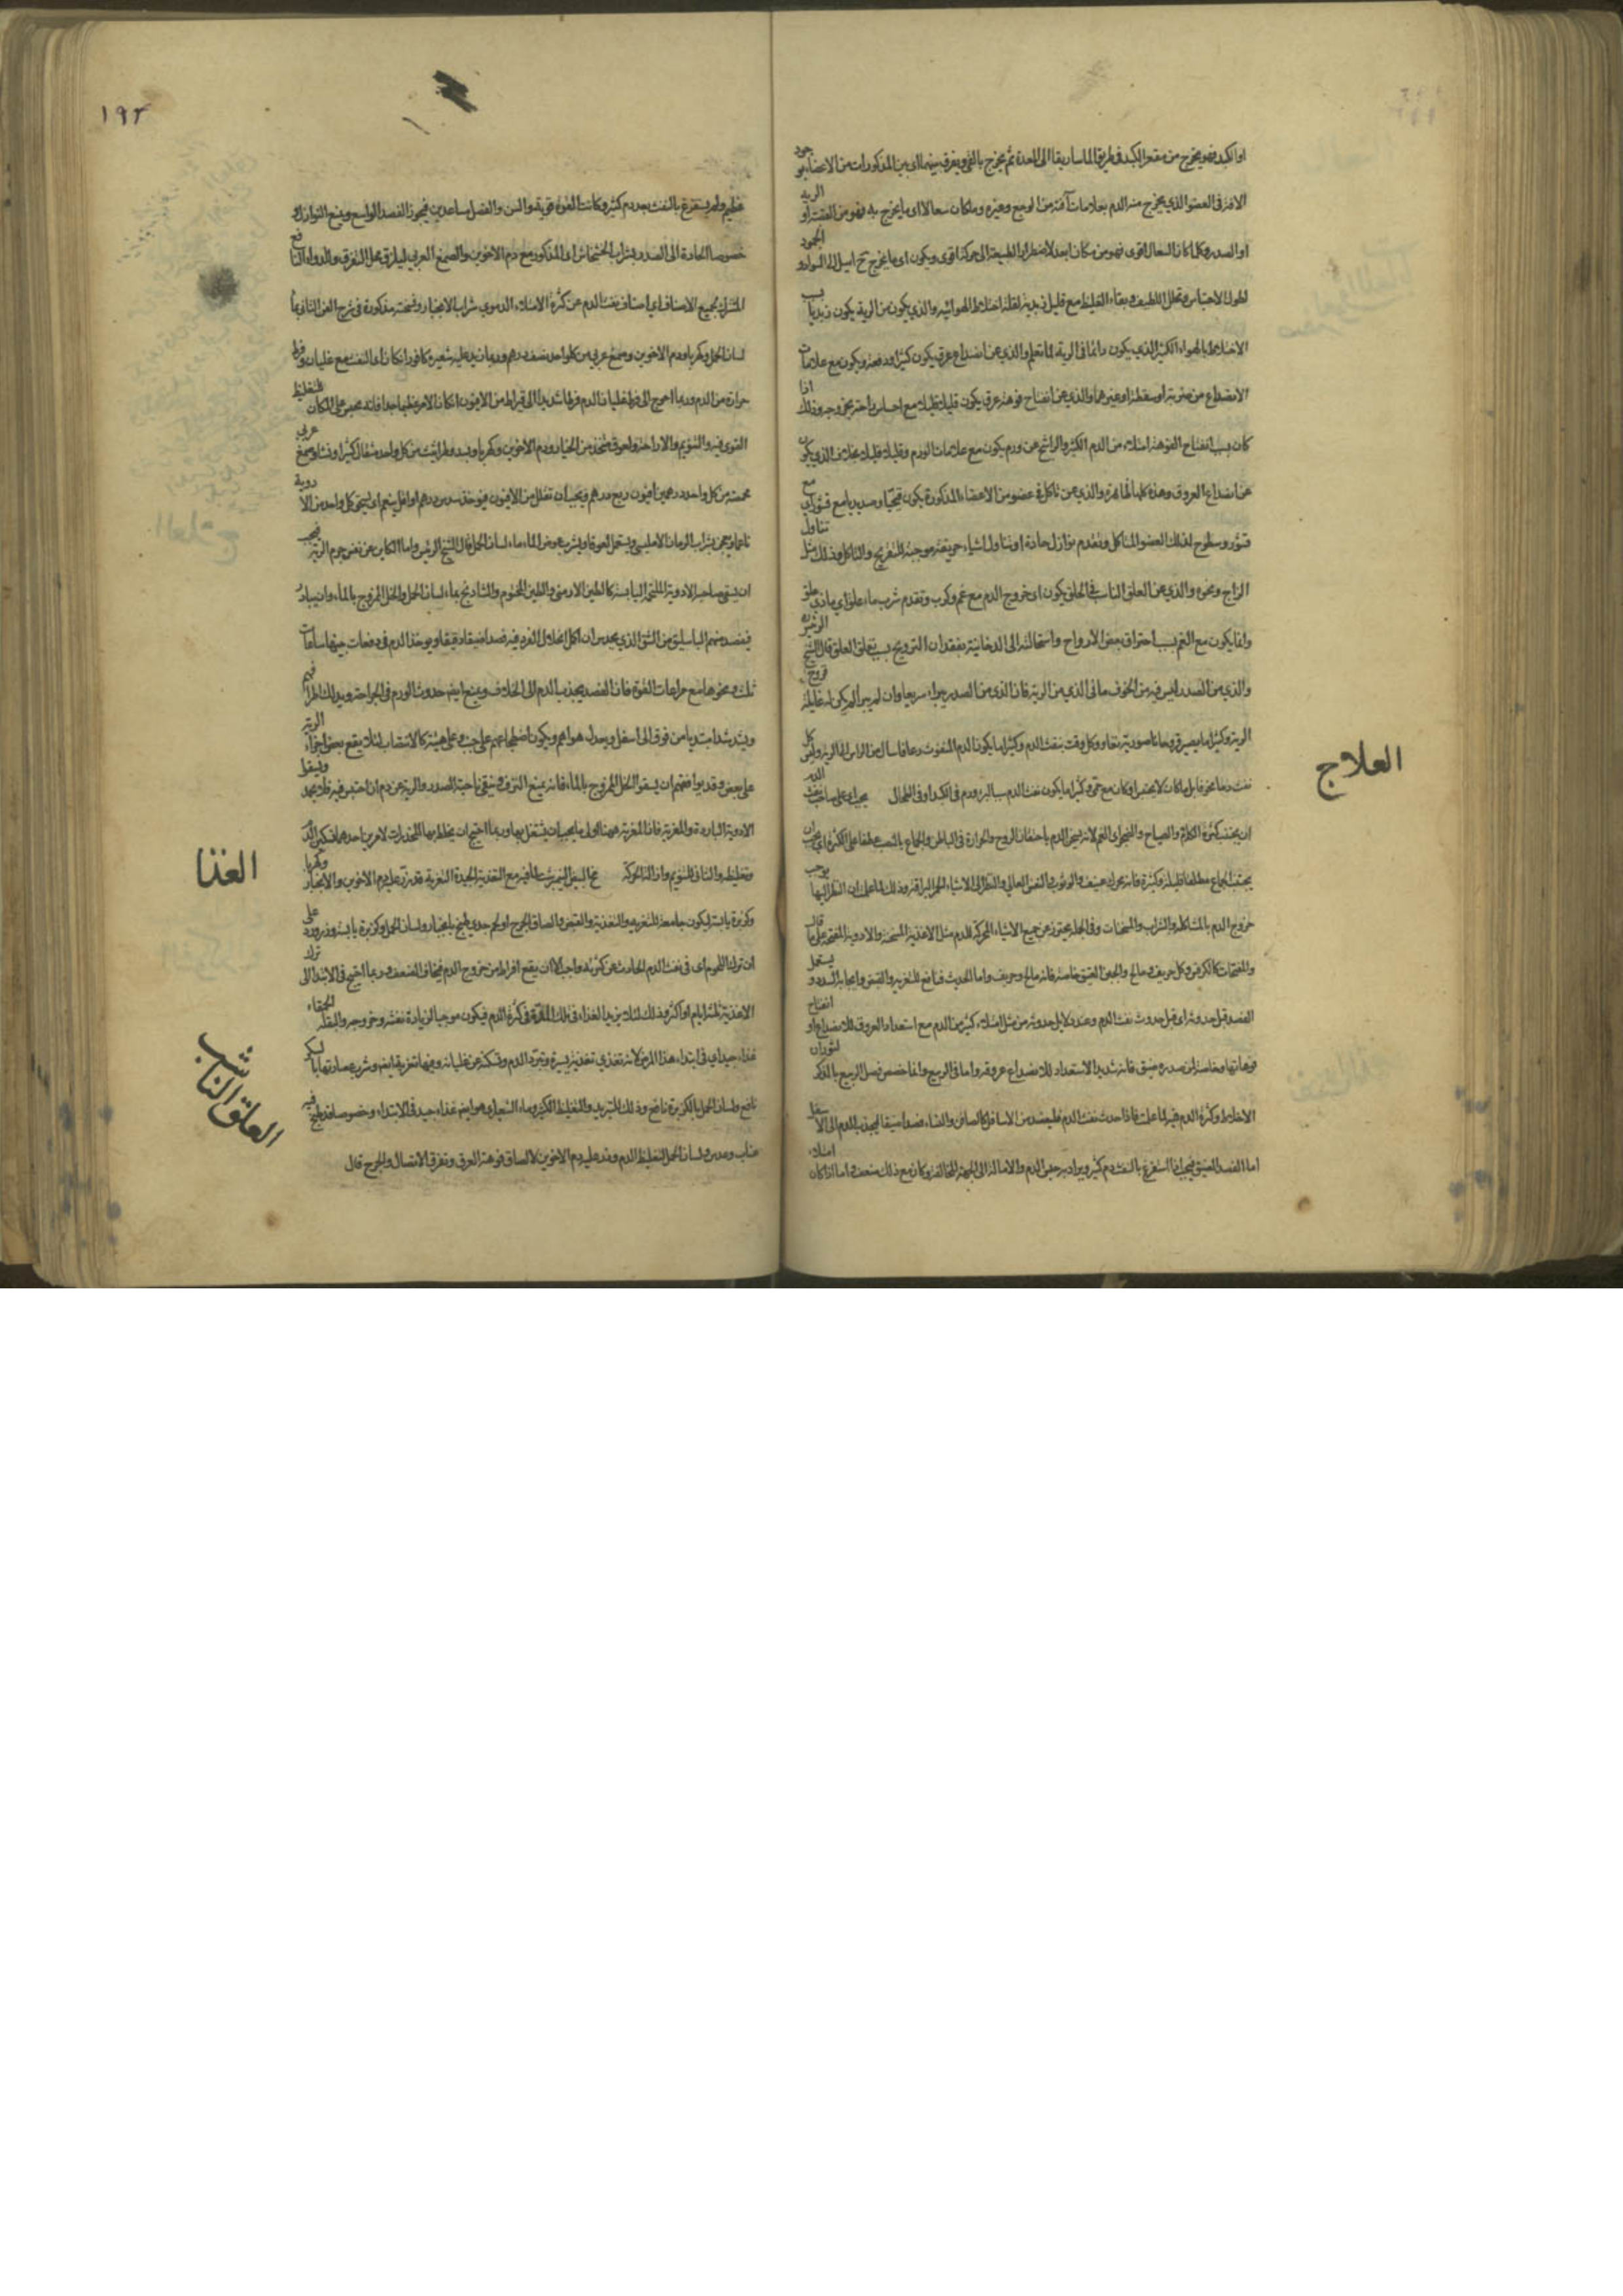 او الكبد فهو يخرج من مقعر الكبد في طريق الماساريقا الى المعدة ثم يخرج بالقي ويفرق بينها اي بين المذكورات من الاعضا بوجود
الافة في العضو الذي يخرج منه الدم بعلامات آفته من الوجع وغيره وما كان سعالا اي ما يخرج به فهو من القصبة او الرية
او الصدر وكلما كان السعال اقوى فهو من مكان ابعد لاضطرار الطبيعة الى حركة اقوى ويكون اي ما يخرج ح اميل الى السواد و الجمود
لطول الاحتباس وتحلل اللطيف وبقاء الغليظ مع قليل زبدية لقلة اختلاط الهوائية والذي يكون من الرية يكون زبديا بسبب
الاختلاط بالهواء الكثير الذي يكون دائما في الرية لما تعلم والذي عن انصداع عرق يكون كثيرا ودفعة ويكون مع علامات
الانصداع من ضربة او سقطة او غيرهما والذي عن انفتاح فوهة عرق يكون قليلا قليلا مع احساس راحة بخروجه وذلك اذا
كان سبب انفتاح الفوهة امتلاء من الدم الكثير والراشح عن ورم يكون مع علامات الورم وقليلا قليلا بخلاف الذي يكون
عن انصداع العروق وهذه كلها ظاهرة والذي عن تاكل في عضو من الاعضاء المذكورة يكون قيحيا وصديديا مع قشور اي مع
قشور وسطوح لذلك العضو المتاكل وتقدم نوازل حادة او تناول اشياء حريفة موجبة للتقريح والتاكل وذلك مثل تناول
الزاج ونحوه والذي عن العلق الناشب في الحلق يكون اي خروج الدم مع غم وكرب وتقدم شرب ماء علق اي ماء ذي علق
وانما يكون مع الغم بسبب احتراق بعض الارواح واستحالته الى الدخانية بفقدان الترويح بسبب تعلق العلق قال الشيخ الرئيس
والذي من الصدر ليس فيه من الخوف ما في الذي من الرية فان الذي من الصدر يبراء سريعا وان لم يبرا لم يكن له غايلة قروح
الرية وكثيرا ما يصير قروحا ناصورية تعاود كل وقت بنفث الدم وكثيرا ما يكون الدم المنفوث رعافا سال من الراس الى الرية وليس كل
نفث دما مخوفا بل ما كان لا يحتبس او كان مع حمى وكثيرا ما يكون نفث الدم سببا لبرء ورم في الكبد او في الطحال يجب اي على صاحب نفث الدم
ان يجتنب كثرة الكلام والصياح والضجر اي الغم لانه يسخن الدم باحتقان الروح والحرارة في الباطن والجماع بالنصب عطفا على الكثرة اي يجب ان
يجتنب الجماع مطلقا قليله وكثيره فانه يحرك عنيف والوثوب والنفس العالي والنظر الى الاشياء الحمر البراقة وذلك لما علمت ان النظر اليها يوجب
خروج الدم بالمشاكلة والشراب والمسخنات وفي الجملة يحترز عن جميع الاشياء المحركة للدم مثل الاغذية المسخنة والادوية المفتحة على ما قال
والمفتحات كالكرفس وكل حريف ومالح والجبن العتيق خاصة فانه مالح وحريف واما الحديث فنافع للتغرية والقبض وايجابه السدد و يستعمل
الفصد قبل حدوثه اي قبل حدوث نفث الدم وعند دلايل حدوثه من مثل امتلاء كثير من الدم مع استعداد العروق للانصداع او انفتاح
فوهاتها وخاصة لمن صدره ضيق فانه شديد الاستعداد للانصداع عروقه واما في الربيع وانما خصص فصل الربيع بالذكر لثوران
الاخلاط وكثرة الدم فيه لما علمت فاذا حدث نفث الدم فليفصد من الاسافل كالصافن والنساء فصدا ضيقا ليجذب الدم الى الاسفل
اما الفصد الضيق فيجب اذا استفرغ بالنفث دم كثير ويراد به حبس الدم والامالة الى الجهة المخالفة وكان مع ذلك ضعف واما اذا كان امتلاء
العلاج
١٩٢
عظيم ولم يستفرغ بالنفث بعد دم كثير وكانت القوة قوية والسن والفصل مساعدين فيجوز الفصد الواسع ويمنع النوازل و
خصوصا الحادة الى الصدر بشراب الخشخاش اي المذكور مع دم الاخوين والصمغ العربي ليلزق محل التفرق والدواء النافع
المشترك لجميع الاصناف اي اصناف نفث الدم عن كثرة الامتلاء الدموي شراب الانجبار ونسخته مذكورة في شرح الفن الثاني بماء
لسان الحمل وكهربا ودم الاخوين وصمغ عربي من كل واحد نصف درهم وربما زيد عليه شعيرة كافور ان كان الدم النفث مع غليان وفرط
حرارة من الدم وربما احوج الى فرط غليان الدم فرطا شديدا الى قيراط من الافيون ان كان الامر عظيما جدا فانه يحبس على المكان لتغليظ
القوى فيه والتنويم والاراحة ولعوق متخذ من الخيار ودم الاخوين وكهربا وبسد وطراثيث من كل واحد مثقال كثيرا ونشا وصمغ عربي
محمصة من كل واحد درهمين افيون ربع درهم ويجب ان تقلل من الافيون فيوخذ سدس درهم او اقل ينعم اي يسحق كل واحد من الادوية
ناعما ويعجن بشراب الرمان الامليسي ويستعمل لعوقا ويشرب عوض الماء ماء لسان الحمل قال الشيخ الرئيس واما الكاين عن نفس جرم الرية فيجب
ان يسقى صاحبه الادوية الملحمة اليابسة كالطين الارمني والطين المختوم والشادنج بماء لسان الحمل والخل الممزوج بالماء وان يبادر
فيفصد منهم الباسليق من الشق الذي يحدس ان اكل انحلال الفرد فيه فصدا ضيقا دقيقا ويوخذ الدم في دفعات بينها ساعات
ثلث ونحوها مع مراعات القوة فان الفصد يجذب الدم الى الخلاف ويمنع ايضا حدوث الورم في الجراحة ويدلك اطرافهم
ويشد شدا مبتديا من فوق الى اسفل ويعدل هواهم ويكون اضطجاعهم على جنب وعلى هيئة كالانتصاب لئلا يقع بعض اجزاء الرية
على بعض وقد يوافقهم ان يسقوا الخل الممزوج بالماء فانه يمنع النزف وينقي ناحية الصدر والرية عن دم ان احتبس فيه فلا يجمد ويسقوا
الادوية الباردة والمغرية فان المغرية ههنا اولى ما يجب ان يشتغل بها وربما احتيج ان يخلط بهما المخدرات لامرين احدهما تسكين الدم
وتغليظه والثاني للتنويم وازالة الحركة مخ البيض النيمبرشت لما فيه مع التغذية الجيدة التغرية قد ذر عليه دم الاخوين والانجبار وكهربا
وكزبرة يابسة ليكون جامعة للتغريه والتغذية والقبض والصاق الجرح او لحم جدي طبخ بانجبار ولسان الحمل وكزبرة يابسة وذرورد على
ان ترك اللحوم اي في نفث الدم الحادث عن كثرته واجب الا ان يقع افراط من خروج الدم فيخاف الضعف وربما احتيج في الابتدا الى ترك
الاغذية ثلثة ايام او اكثر وذلك لئلا يزيد الغذاء في تلك المدة في كثرة الدم فيكون موجبا لزيادة نفثه وخروجه والبقلة الحمقاء
غذاء جيد اي في ابتداء هذا المرض لانه تغذي تغذية يسيرة وتبرد الدم وتسكنه عن غليانه وفيها تغرية ايضا وشرب عصارتها بالسكر
نافع ولسان الحمل بالكزبرة نافع وذلك للتبريد والتغليظ الكثير وماء الشعير اي هو ايضا غذاء جيد في الابتداء وخصوصا قد طبخ فيه
عناب وعدس ولسان الحمل لتغليظ الدم وذر عليه دم الاخوين لالصاق فوهة العرق وتفرق الاتصال والجرح قال
الغذا
العلق الناشب